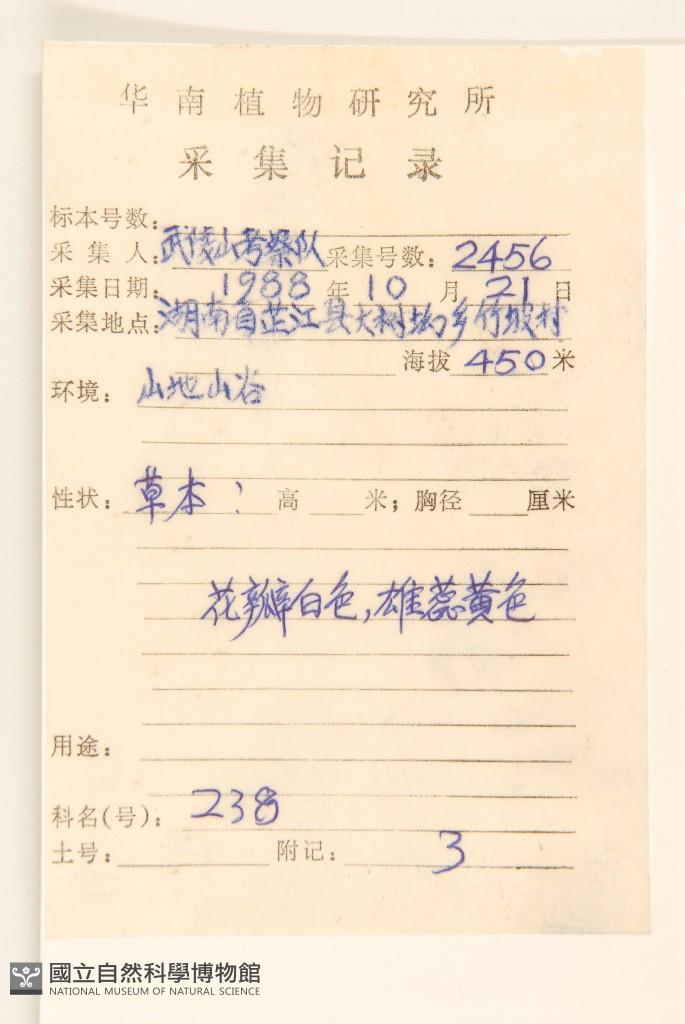 华南植物研究所
采集记录
标本号数:
采集人:武陵山考察队 采集号数: 2456
采集日期: 1988 年 10 月 21 日
采集地点:湖南省芷江县大树坳乡竹坡村
海拔 450 米
环境: 山地山谷
性状: 草本; 高 米; 胸径 厘米
花瓣白色,雄蕊黄色
用途:
科名(号): 238
土号: 附记: 3
國立自然科學博物館
NATIONAL MUSEUM OF NATURAL SCIENCE